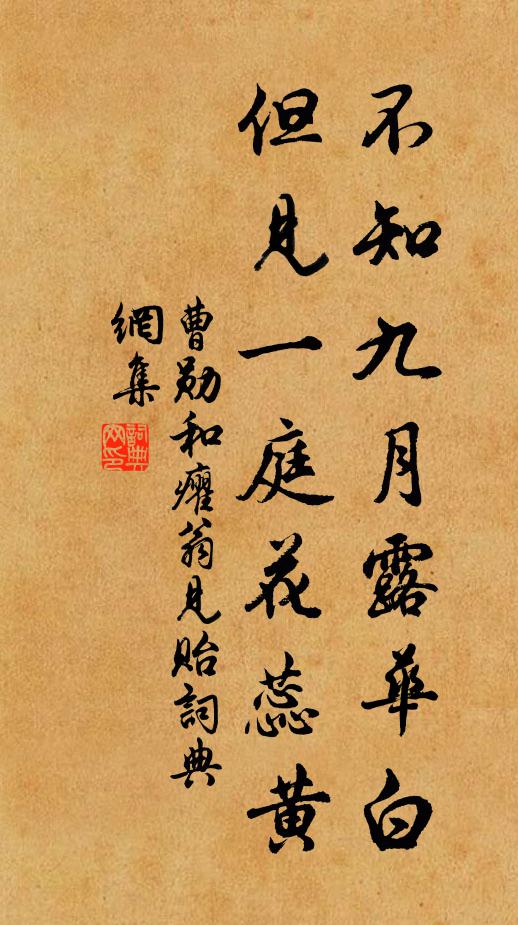 不知九月露華白
但見一庭花蕊黃
曹勛和癯翁見貽詞典
網集
詞典網印